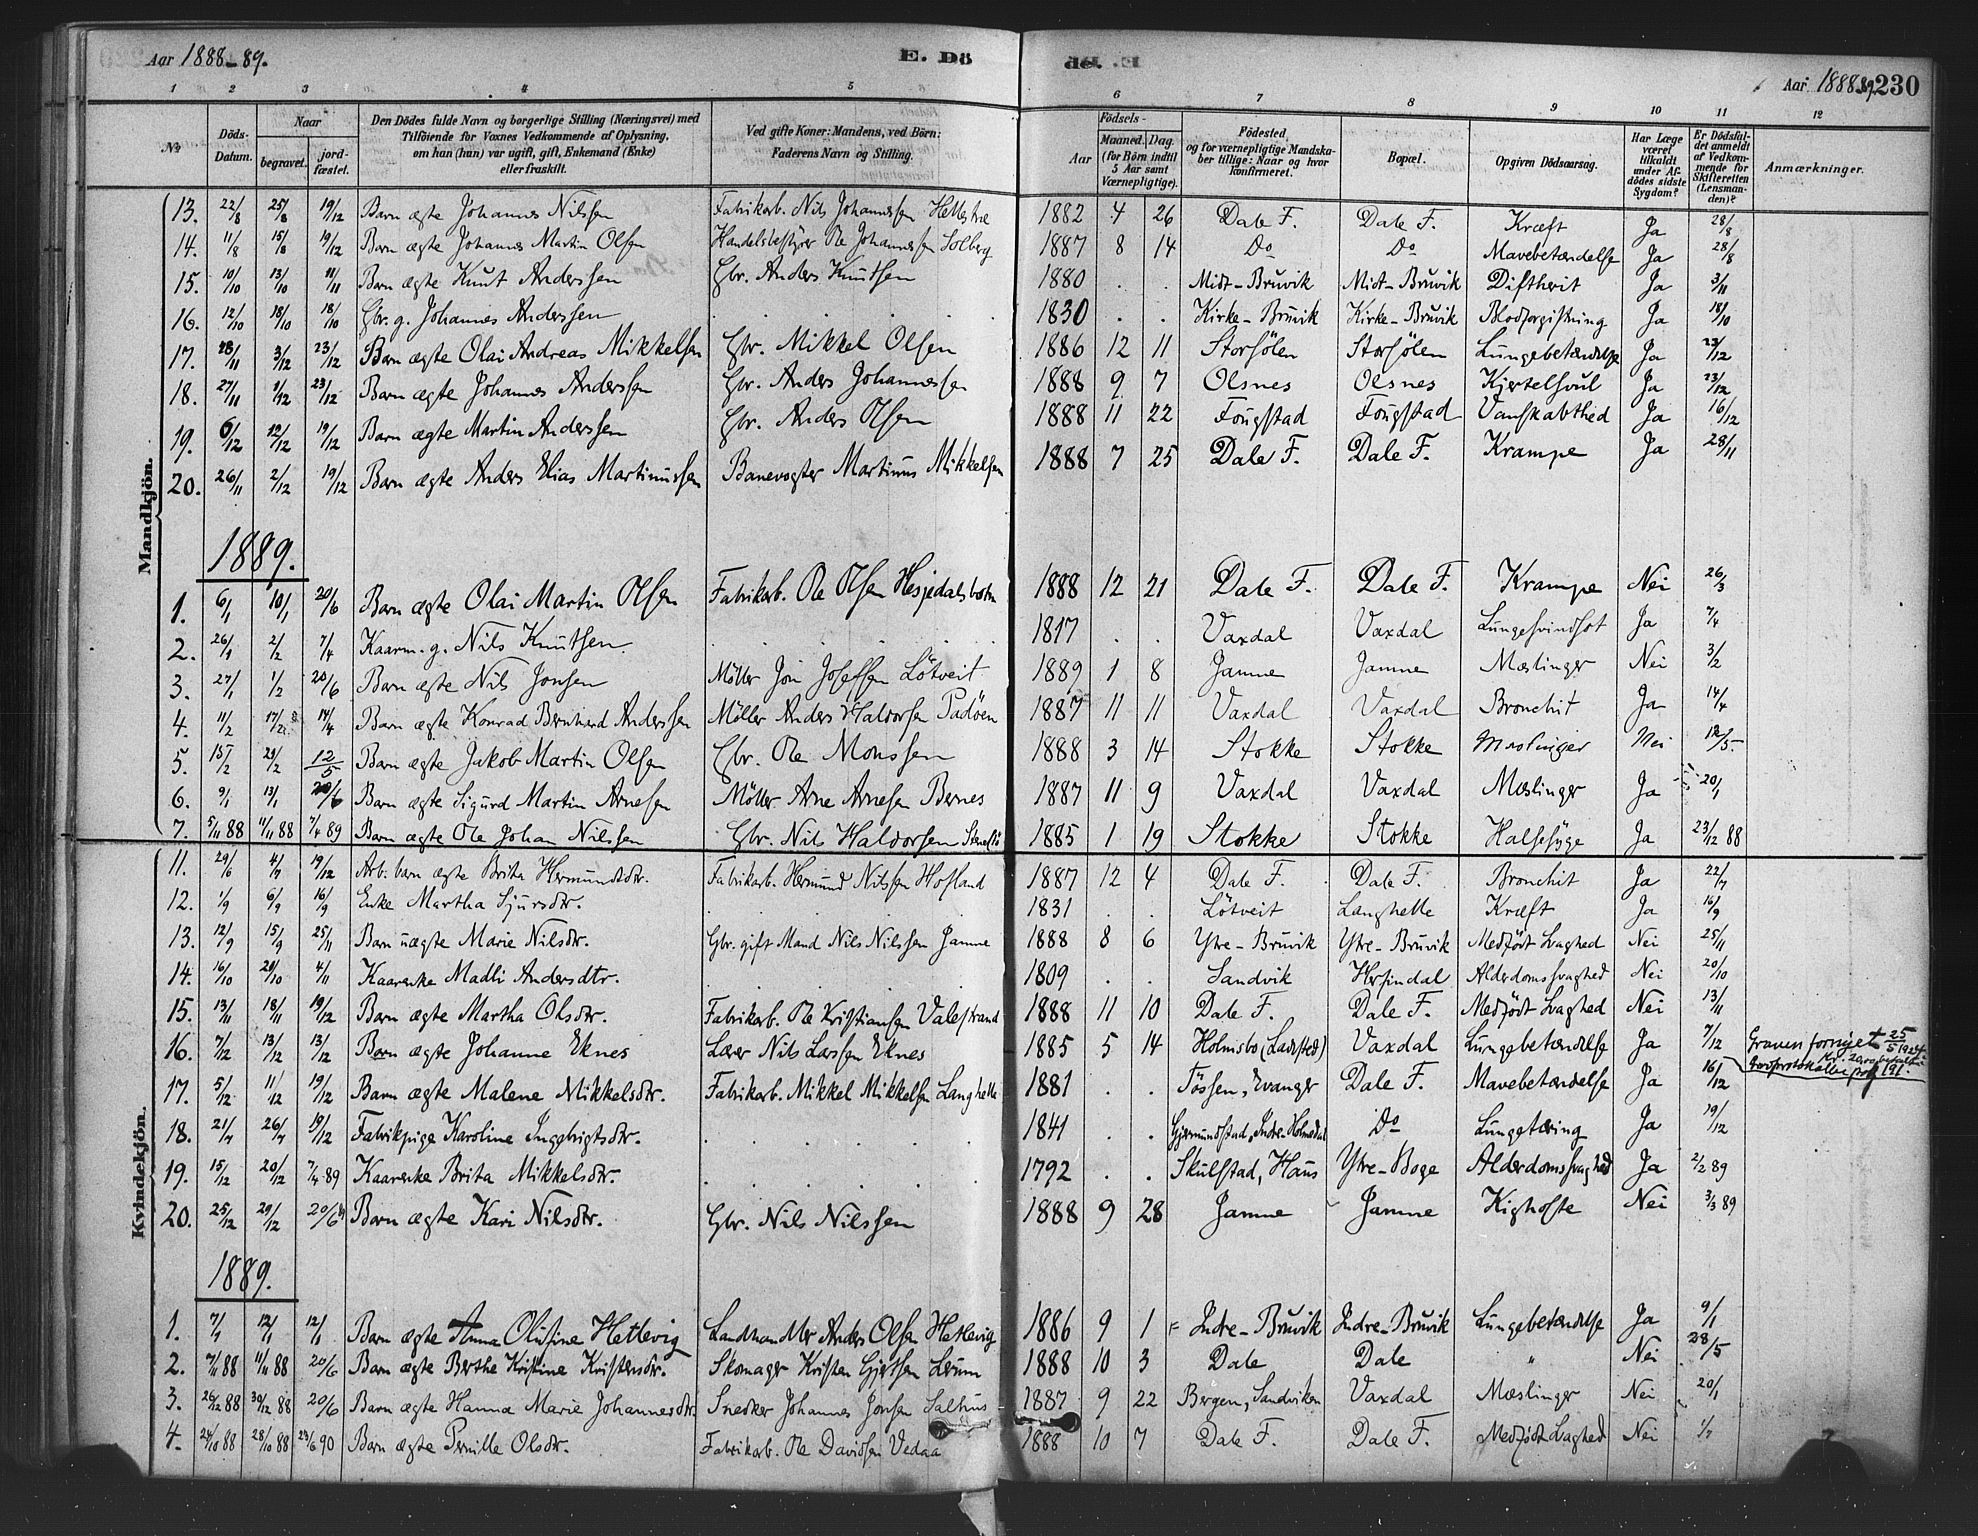 Aar 1888-89.
E. Dö
de. E.
Aar 1888-89. 230
1 2 3 4 5 6 7 8 9 10 11 12
№ Döds-Datum. Naar begravet. jord-fæstet. Den Dödes fulde Navn og borgerlige Stilling (Næringsvei) med Tilföiende for Voxnes Vedkommende af Oplysning, om han (hun) var ugift, gift, Enkemand (Enke) eller fraskilt. Ved gifte Koner: Mandens, ved Börn: Faderens Navn og Stilling. Födsels- Aar Maaned. Dag. (for Börn indtil 5 Aar samt Værnepligtige). Födested, og for værnepligtige Mandskaber tillige: Naar og hvor konfirmeret. Bopæl. Opgiven Dödsaarsag. Har Læge været tilkaldt under Afdödes sidste Sygdom? Er Dödsfaldet anmeldt af Vedkommende for Skifteretten (Lensmanden)? Anmærkninger.
Mandkjön.
13. 22/8 25/8 19/12 Barn ægte Johannes Nilsen Fabrikarb. Nils Johannessen Hellestræ 1882 4 26 Dale F. Dale F. Kræft Ja 28/8
14. 11/8 15/8 19/12 Barn ægte Johannes Martin Olsen Handelsbestyrer Ole Johannessen Solberg 1887 8 14 Do Do Mavebetændelse Ja 28/8
15. 10/10 13/10 11/11 Barn ægte Knut Anderssen Gbr. Anders Knutsen 1880 . . Midt-Bruvik Midt-Bruvik Diftherit Ja 3/11
16. 12/10 18/10 18/10 Gbr. g. Johannes Anderssen . 1830 . . Kirke-Bruvik Kirke-Bruvik Blodforgiftning Ja 18/10
17. 28/11 3/12 23/12 Barn ægte Olai Andreas Mikkelsen Gbr. Mikkel Olsen 1886 12 11 Storsölen Storsölen Lungebetændelse Ja 23/12
18. 27/11 1/12 23/12 Barn ægte Johannes Anderssen Gbr. Anders Johannessen 1888 9 7 Olsnes Olsnes Kjertelsvul Ja 23/12
19. 6/12 12/12 19/12 Barn ægte Martin Anderssen Gbr. Anders Olsen 1888 11 22 Fougstad Fougstad Vanskabthed Ja 16/12
20. 26/11 2/12 19/12 Barn ægte Anders Elias Martinussen Banevogter Martinus Mikkelsen 1888 7 25 Dale F. Dale F. Krampe Ja 28/11
1889.
1. 6/1 10/1 20/6 Barn ægte Olai Martin Olsen Fabrikarb. Ole Olsen Hesjedalsbotn 1888 12 21 Dale F. Dale F. Krampe Nei 26/3
2. 26/1 2/2 7/4 Kaarm. g. Nils Knutsen . 1817 . . Vaxdal Vaxdal Lungesvindsot Ja 7/4
3. 27/1 1/2 20/6 Barn ægte Nils Jonsen Möller Jon Josefsen Lötveit 1889 1 8 Jamne Jamne Mæslinger Nei 3/2
4. 11/2 17/2 14/4 Barn ægte Konrad Bernhard Anderssen Möller Anders Haldorsen Padöen 1887 11 11 Vaxdal Vaxdal Bronchit Ja 14/4
5. 15/2 21/2 12/5 Barn ægte Jakob Martin Olsen Gbr. Ole Monssen 1888 3 14 Stokke Stokke Mæslinger Nei 12/5
6. 9/1 13/1 20/6 Barn ægte Sigurd Martin Arnesen Möller Arne Arnesen Bernes 1887 11 9 Vaxdal Vaxdal Mæslinger Ja 20/1
7. 5/11 88 11/11 88 7/4 89 Barn ægte Ole Johan Nilssen Gbr. Nils Haldorsen 1885 1 19 Stokke Stokke Halsesyge Ja 23/12 88
Kvindekjön.
11. 29/6 4/7 19/12 Arb. barn ægte Brita Hermundsdtr. Fabrikarb. Hermund Nilsen Hofland 1887 12 4 Dale F. Dale F. Bronchit Ja 22/7
12. 1/9 6/9 16/9 Enke Martha Sjursdtr. . 1831 . . Lötveit Langhelle Kræft Ja 16/9
13. 12/9 15/9 25/11 Barn uægte Marie Nilsdtr. Gbr. gift Mand Nils Nilssen Jamne 1888 8 6 Ytre-Bruvik Ytre-Bruvik Medfödt Svaghed Nei 25/11
14. 16/10 20/10 4/11 Kaarenke Madli Andersdtr. . 1809 . . Sandvik Herfindal Alderdomssvaghed Nei 20/10
15. 13/11 18/11 19/12 Barn ægte Martha Olsdtr. Fabrikarb. Ole Kristiansen Valestrand 1888 11 10 Dale F. Dale F. Medfödt Svaghed Nei 13/11
16. 7/12 13/12 13/12 Barn ægte Johanne Eknes Lærer Nils Larssen Eknes 1885 5 14 Holmsbo (Ladested) Vaxdal Lungebetændelse Ja 7/12 Graven fornyet 25/5 1924.
17. 5/12 11/12 19/12 Barn ægte Malene Mikkelsdtr. Fabrikarb. Mikkel Mikkelsen Langhelle 1881 . . Fössen, Evanger Dale F. Mavebetændelse Ja 16/12
18. 21/7 26/7 19/12 Fabrikpige Karoline Ingebrigtsdtr. . 1841 . . Gjermundstad, Indre-Holmedal Do Lungetæring Ja 19/12
19. 15/12 20/12 7/4 89 Kaarenke Brita Mikkelsdtr. . 1792 . . Skulstad, Haus Ytre-Boge Alderdomssvaghed Ja 2/2 89
20. 25/12 29/12 20/6 Barn ægte Kari Nilsdtr. Gbr. Nils Nilssen 1888 9 28 Jamne Jamne Kighoste Nei 3/3 89
1889.
1. 7/1 12/1 12/1 Barn ægte Anna Olufine Hetlevig Landhandler Anders Olsen Hetlevig 1886 9 1 Indre-Bruvik Indre-Bruvik Lungebetændelse Ja 9/1
2. 7/11 88 11/11 88 20/6 Barn ægte Berthe Kristine Kristensdtr. Skomager Kristen Gjertsen Lerum 1888 10 3 Dale Dale " Nei 28/5
3. 26/12 88 30/12 88 20/6 Barn ægte Hanna Marie Johannesdtr. Snedker Johannes Jonsen Salhus 1887 9 22 Bergen, Sandviken Vaxdal Mæslinger Nei 20/1
4. 24/10 88 28/10 88 23/6 90 Barn ægte Pernille Olsdtr. Fabrikarb. Ole Davidsen Vedaa 1888 10 7 Dale F. Dale F. Medfödt Svaghed Nei 1/7